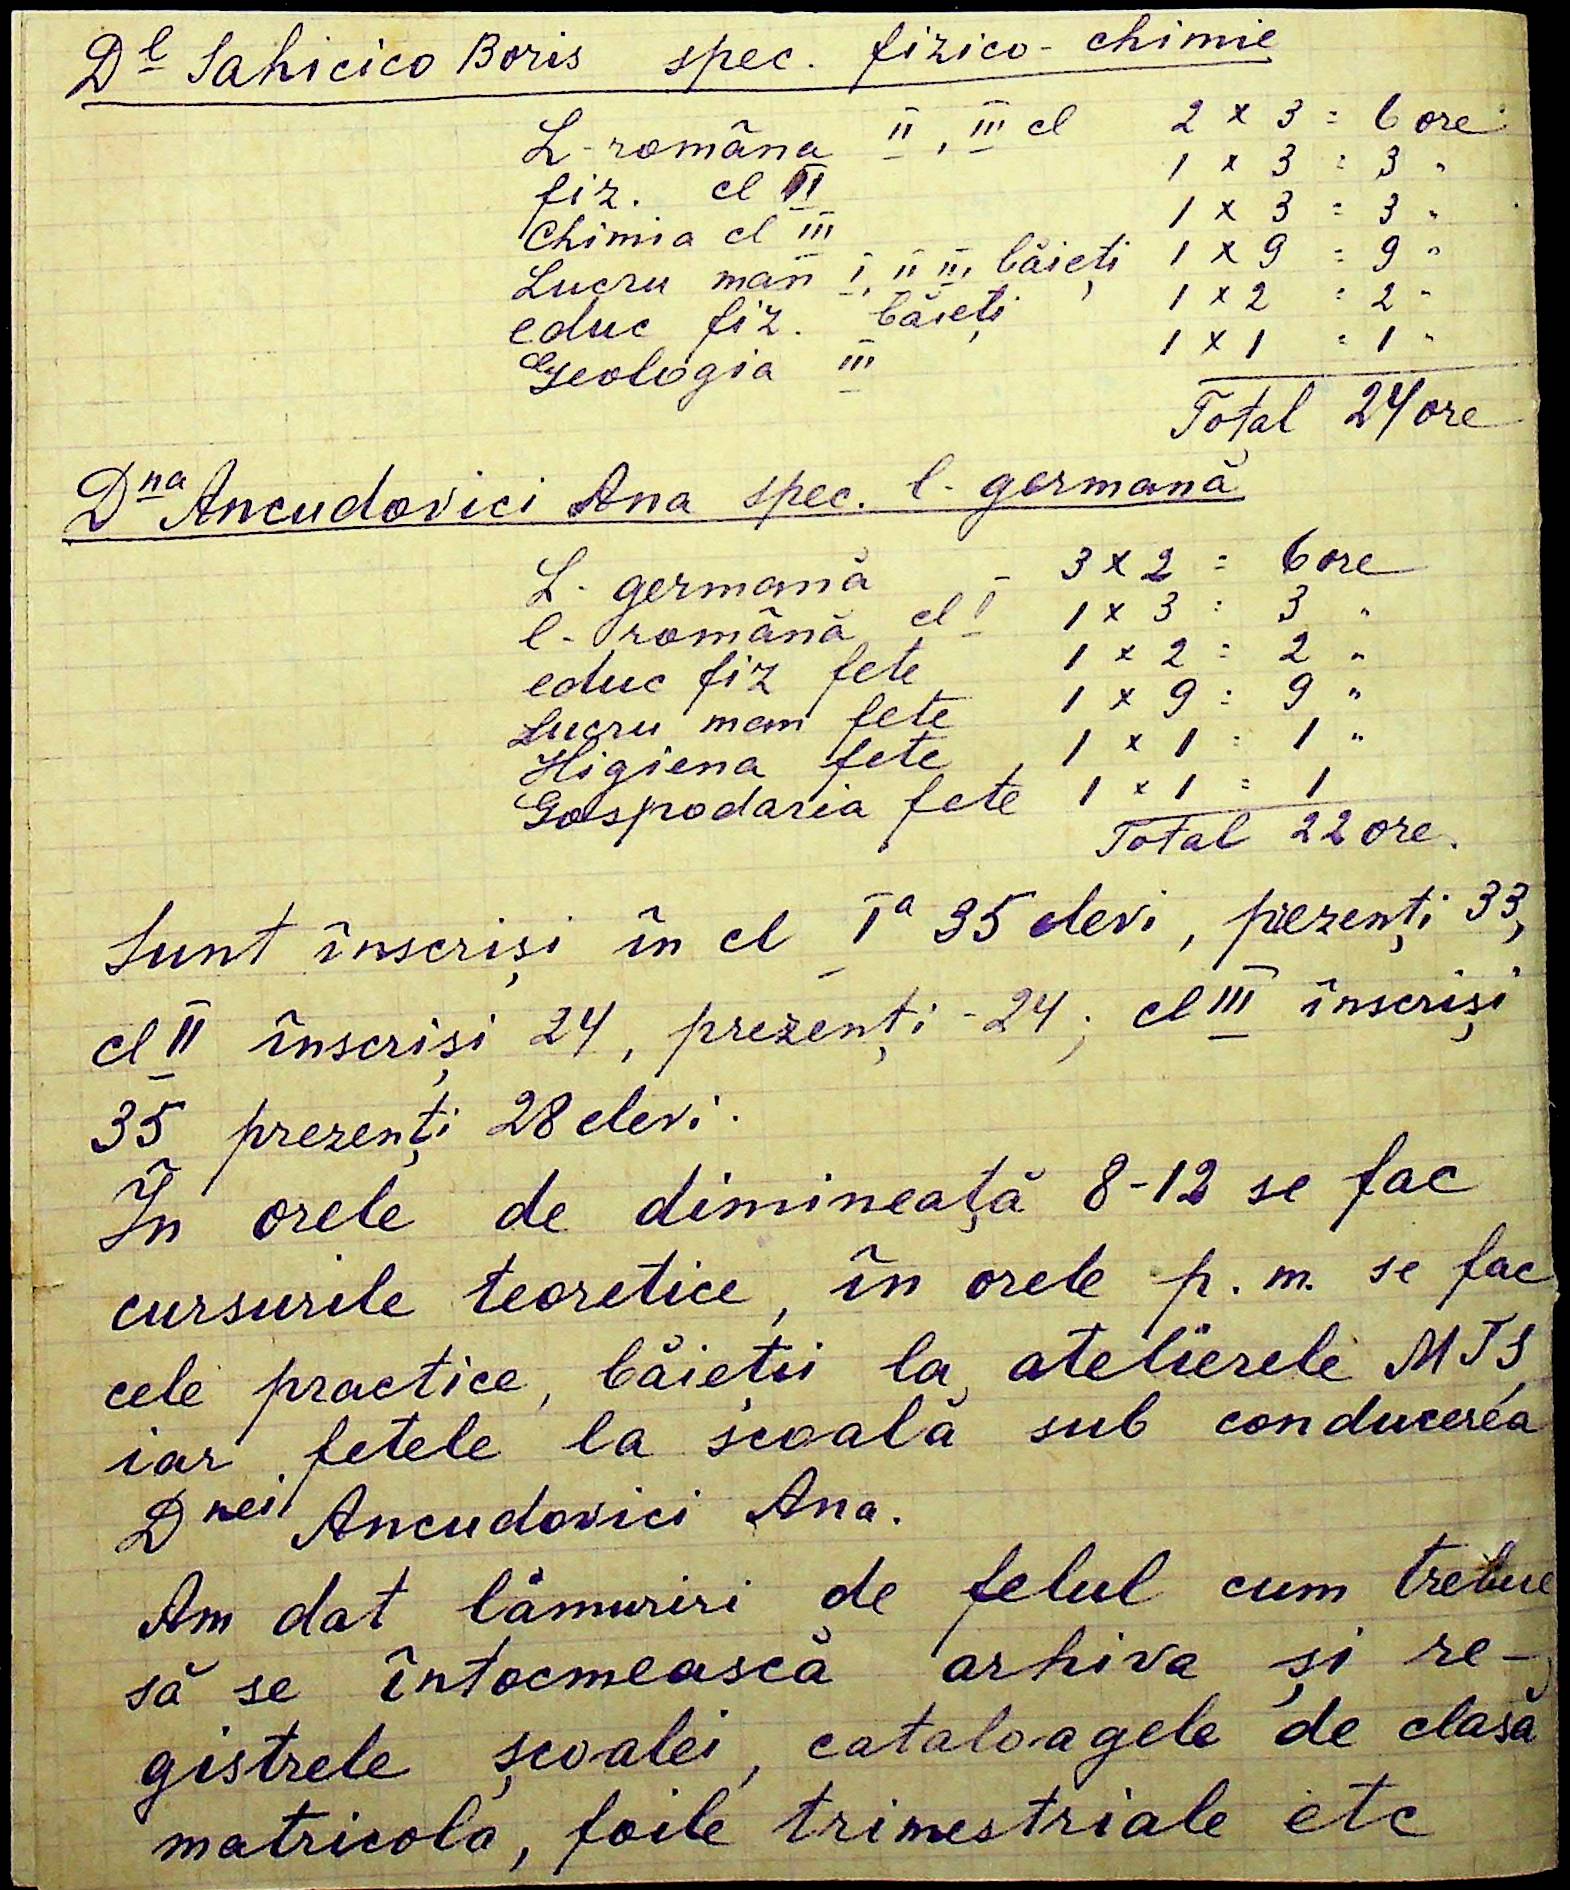 Dl Sahicico Boris spec. fizico-chimie
L-româna II, III cl 2 x 3 = 6 ore
fiz. cl II 1 x 3 = 3 "
Chimia cl III 1 x 3 = 3 "
Lucru man I, II III, băieți 1 x 9 = 9 "
educ fiz. băieți 1 x 2 = 2 "
Geologia III 1 x 1 = 1 "
Total 24 ore
Dna Ancudovici Ana spec. l. germană
L. germană - 3 x 2 = 6 ore
l. română cl I 1 x 3 = 3 "
educ fiz fete 1 x 2 = 2 "
Lucru man fete 1 x 9 = 9 "
Higiena fete 1 x 1 = 1 "
Gospodaria fete 1 x 1 = 1
Total 22 ore.
Sunt înscriși în cl Ia 35 elevi, prezenți 33,
cl II înscriși 24, prezenți - 24; cl III înscriși
35 prezenți 28 elevi.
În orele de dimineață 8-12 se fac
cursurile teoretice, în orele p.m. se fac
cele practice, băieții la atelierele MTS,
iar fetele la școală sub conducerea
Dnei Ancudovici Ana.
Am dat lămuriri de felul cum trebue
să se întocmească arhiva și re-
gistrele școalei, cataloagele de clasă
matricola, foile trimestriale etc